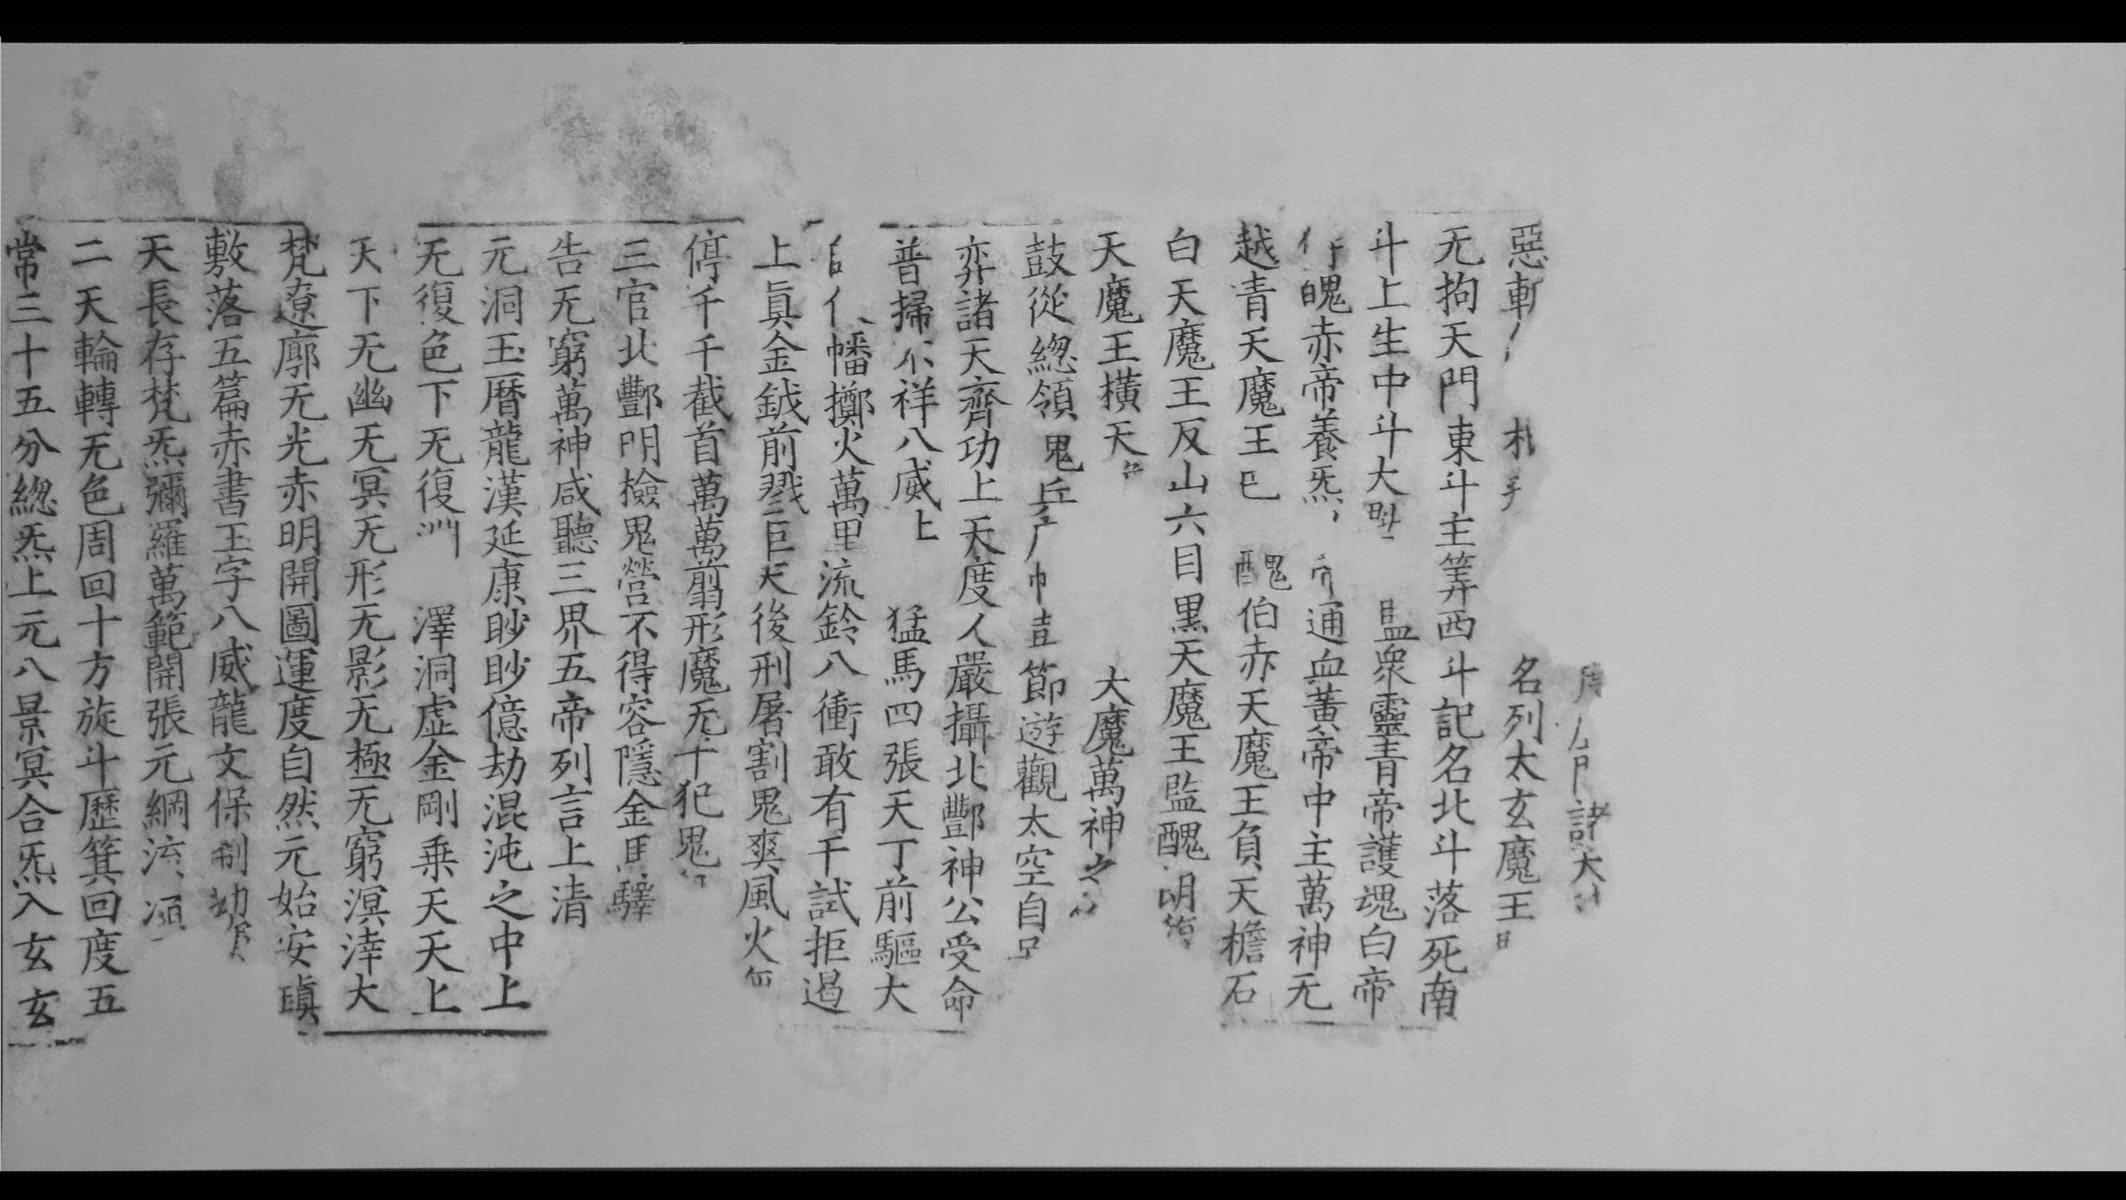 諸天
惡斬 名列太玄魔王
无拘天門東斗主筭西斗記名北斗落死南
斗上生中斗大 監衆靈青帝護魂白帝
侍魄赤帝養炁 通血黃帝中主萬神无
越青天魔王巴 醜伯赤天魔王負天檐石
白天魔王反山六目黑天魔王監醜朗
天魔王橫天 大魔萬神之
鼓從緫領鬼兵 節遊觀太空自
弈諸天齊功上天度人嚴攝北酆神公受命
普掃不祥八威 猛馬四張天丁前驅大
幡擲火萬里流鈴八衝敢有干試拒遏
上眞金鉞前戮巨天後刑屠割鬼爽風火
停千千截首萬萬翦形魔无干犯鬼
三官北酆明檢鬼營不得容隱金馬驛
告无窮萬神咸聽三界五帝列言上清
元洞玉曆龍漢延康眇眇億劫混沌之中上
无復色下无復淵 澤洞虛金剛乘天天上
天下无幽无冥无形无影无極无窮溟涬大
梵遼廓无光赤明開圖運度自然元始安瑱
敷落五篇赤書玉字八威龍文保制劫
天長存梵炁彌羅萬範開張元綱流
二天輪轉无色周回十方旋斗歷箕回度五
常三十五分緫炁上元八景冥合炁入玄玄